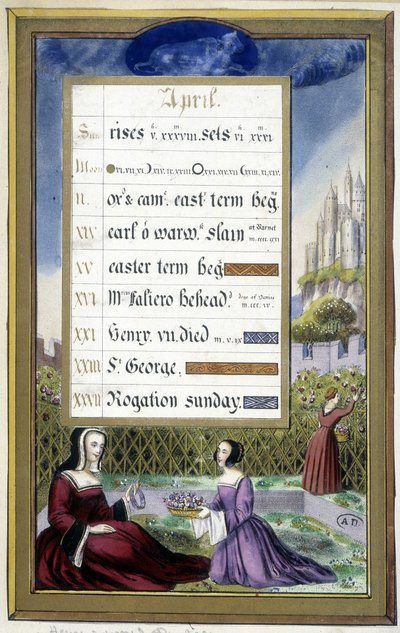 April.
Sun rises h. v. m. xxxviii. sets h. vi m. xxxi
Moon
II. oxd & came. eastr term begns
XIV earl o warwk slain at Barnet m.cccc.lxxi
XV easter term begs
XVI Mno Faliero behead.d doge of Venice m.ccc.lv.
XXI Henry. VII. died m.v.ix
XXIII St George.
XXVII Rogation sunday.
AD